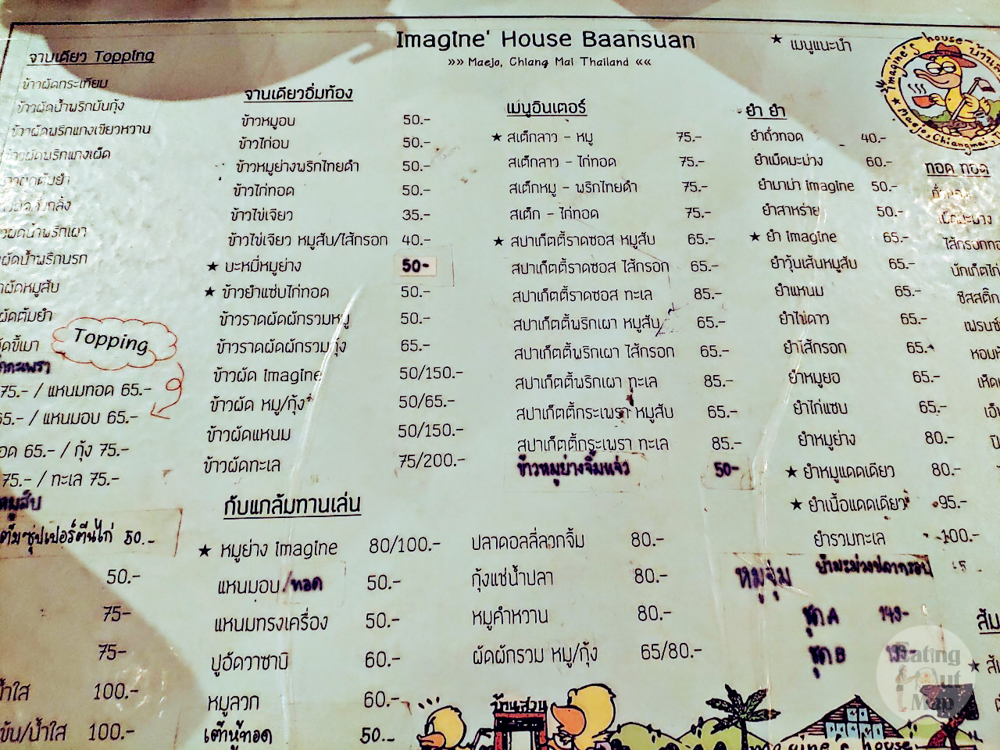 Imagine' House Baansuan
»» Maejo, Chiang Mai Thailand ««
★ เมนูแนะนำ
imagine's house บ้านสวน
Maejo, Chiangmai
จานเดียว Topping
ข้าวผัดกระเทียม
ข้าวผัดน้ำพริกมันกุ้ง
ข้าวผัดพริกแกงเขียวหวาน
ข้าวผัดพริกแกงเผ็ด
ผัดน้ำพริกเผา
ผัดน้ำพริกนรก
ผัดหมูสับ
ผัดต้มยำ
ขี้เมา
Topping
75.- / แหนมทอด 65.-
65.- / แหนมอบ 65.-
65.- / กุ้ง 75.-
75.- / ทะเล 75.-
หมูสับ
ต้มซุปเปอร์ตีนไก่ 50.-
50.-
75-
75-
น้ำใส 100.-
ข้น/น้ำใส 100.-
จานเดียวอิ่มท้อง
ข้าวหมูอบ 50.-
ข้าวไก่อบ 50.-
ข้าวหมูย่างพริกไทยดำ 50.-
ข้าวไก่ทอด 50.-
ข้าวไข่เจียว 35.-
ข้าวไข่เจียว หมูสับ/ไส้กรอก 40.-
★ บะหมี่หมูย่าง 50-
★ ข้าวยำแซ่บไก่ทอด 50.-
ข้าวราดผัดผักรวมหมู 50.-
ข้าวราดผัดผักรวมกุ้ง 65.-
ข้าวผัด imagine 50/150.-
ข้าวผัด หมู/กุ้ง 50/65.-
ข้าวผัดแหนม 50/150.-
ข้าวผัดทะเล 75/200.-
เม่นูอินเตอร์
★ สเต็กลาว - หมู 75.-
สเต็กลาว - ไก่ทอด 75.-
สเต็กหมู - พริกไทยดำ 75.-
สเต็ก - ไก่ทอด 75.-
★ สปาเก็ตตี้ราดซอส หมูสับ 65.-
สปาเก็ตตี้ราดซอส ไส้กรอก 65.-
สปาเก็ตตี้ราดซอส ทะเล 85.-
สปาเก็ตตี้พริกเผา หมูสับ 65.-
สปาเก็ตตี้พริกเผา ไส้กรอก 65.-
สปาเก็ตตี้พริกเผา ทะเล 85.-
สปาเก็ตตี้กระเพรา หมูสับ 65.-
สปาเก็ตตี้กระเพรา ทะเล 85.-
ข้าวหมูย่างจิ้มแจ่ว 50-
ยำ ยำ
ยำถั่วทอด 40.-
ยำเม็ดมะม่วง 60.-
ยำมาม่า imagine 50.-
ยำสาหร่าย 50.-
★ ยำ imagine 65.-
ยำวุ้นเส้นหมูสับ 65.-
ยำแหนม 65.-
ยำไข่ดาว 65.-
ยำไส้กรอก 65.-
ยำหมูยอ 65.-
ยำไก่แซบ 65.-
ยำหมูย่าง 80.-
★ ยำหมูแดดเดียว 80.-
★ ยำเนื้อแดดเดียว 95.-
ยำรวมทะเล 100.-
ยำมะม่วงปลากรอบ
หมูจุ่ม
ชุด A 149-
ชุด B
ทอด ทอด
กับแกล้มทานเล่น
★ หมูย่าง imagine 80/100.-
แหนมอบ/ทอด 50.-
แหนมทรงเครื่อง 50.-
ปูอัดวาซาบิ 60.-
หมูลวก 60.-
เต้าหู้ทอด 50.-
ปลาดอลลี่ลวกจิ้ม 80.-
กุ้งแช่น้ำปลา 80.-
หมูคำหวาน 80.-
ผัดผักรวม หมู/กุ้ง 65/80.-
บ้านสวน
imagine's house
Eating Out Map